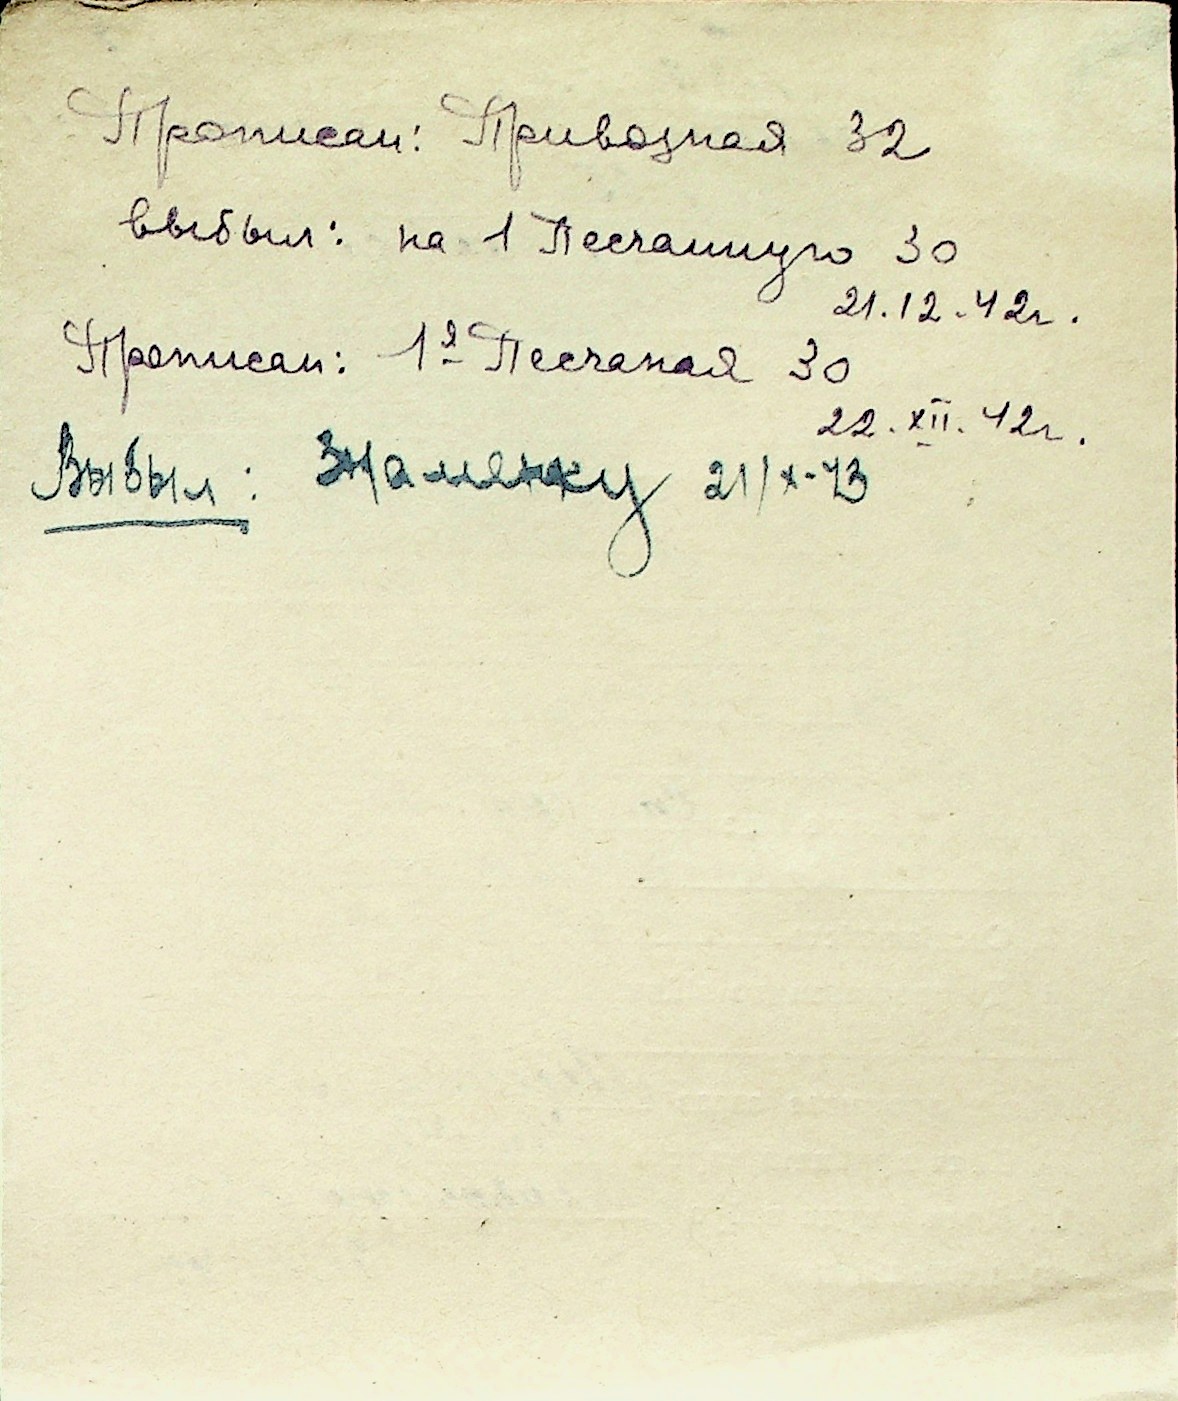 Прописан: Привозная 32
выбыл: на 1 Песчанную 30
21.12.42г.
Прописан: 1я Песчаная 30
22.XII.42г.
Выбыл: Знамянку 21/X-43